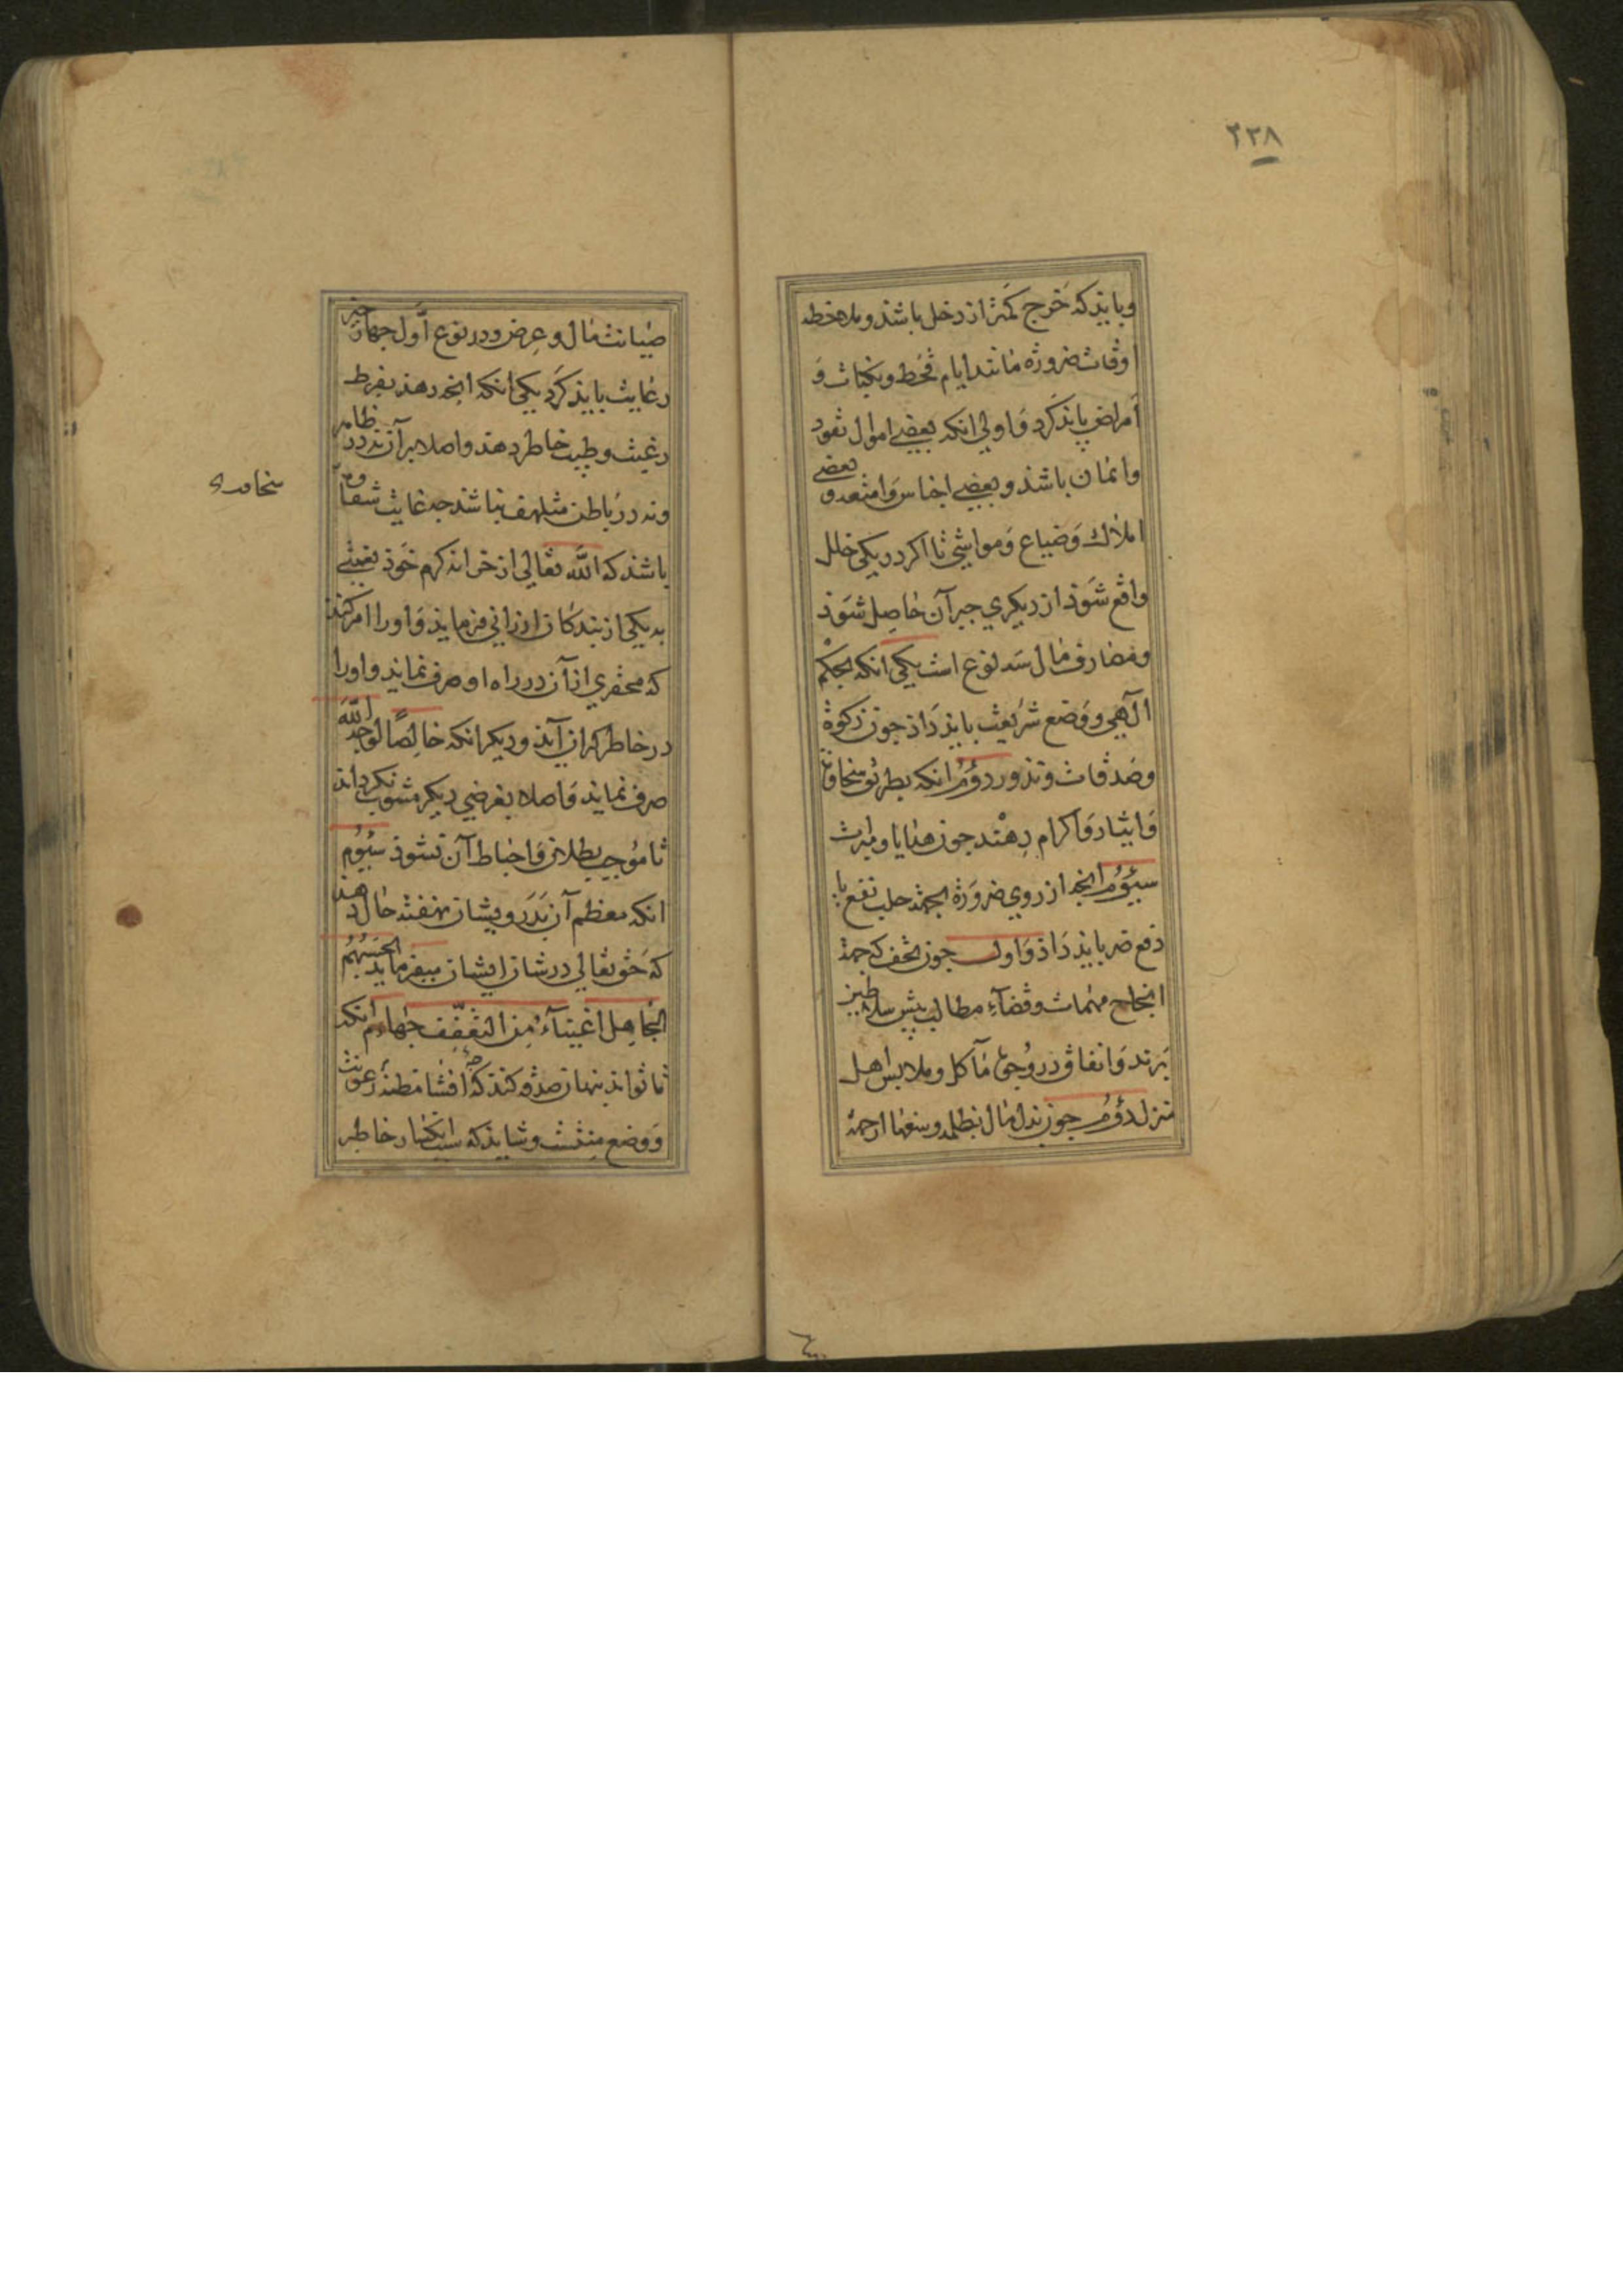 ٢٣٨
وبایذ که خرج کمتر از دخل باشذ وملاحظه
اوقات ضرورة مانند ایام قحط ونکبات و
امراض باید کرد و اولی انکه بعضی اموال نقود
واثمان باشذ و بعضی اجناس وامتعه و بعضی
املاك وضیاع ومواشی تا اکر در یکی خلل
واقع شوذ از دیکری جبر آن حاصل شوذ
ومصارف مال سه نوع است یکی انکه بحکم
الهی ووضع شریعت بایذ داذ جون زکوة
وصدقات ونذور دوم انکه بطریق سخاوت
وایثار واکرام دهند جون هدایا ومبرات
سیوم انجه از روی ضرورة بجهة جلب نفع یا
دفع ضر بایذ داذ واول جون تحف که بجهة
انجاح مهمات وقضآء مطالب پیش سلاطین
برند وانفاق در وجوه مآکل وملابس اهل
منزل دوم جون بذل مال بظلمه وسفها از جهة
صیانت مال و عرض ودر نوع اول جهار چیز
رعایت بایذ کرد یکی انکه انجه دهذ بفرط
رغبت وطیب خاطر دهذ واصلا بر آن نه در ظاهر
ونه در باطن متلهف نباشذ جه غایت شقاوت
باشذ که الله تعالی از خزانه کرم خوذ نعمتی
به یکی از بندکان ارزانی فرمایذ و او را امر کند
که محقری از آن در راه او صرف نماید و او را
در خاطر کران آیذ ودیکر انکه خالصا لوجه الله
صرف نماید واصلا بغرضی دیکر مشوب نکرداند
تا موجب بطلان واحباط آن نشوذ سیوم
انکه معظم آن بدرویشان نهفته حال دهذ
که حق تعالی در شان ایشان میفرماید یحسبهم
الجاهل اغنیآء من التعفف جهارم انکه
تا تواند نهان صدقه کند که افشا مظنه رعونت
ووضع منتست وشاید که سبب انکسار خاطر